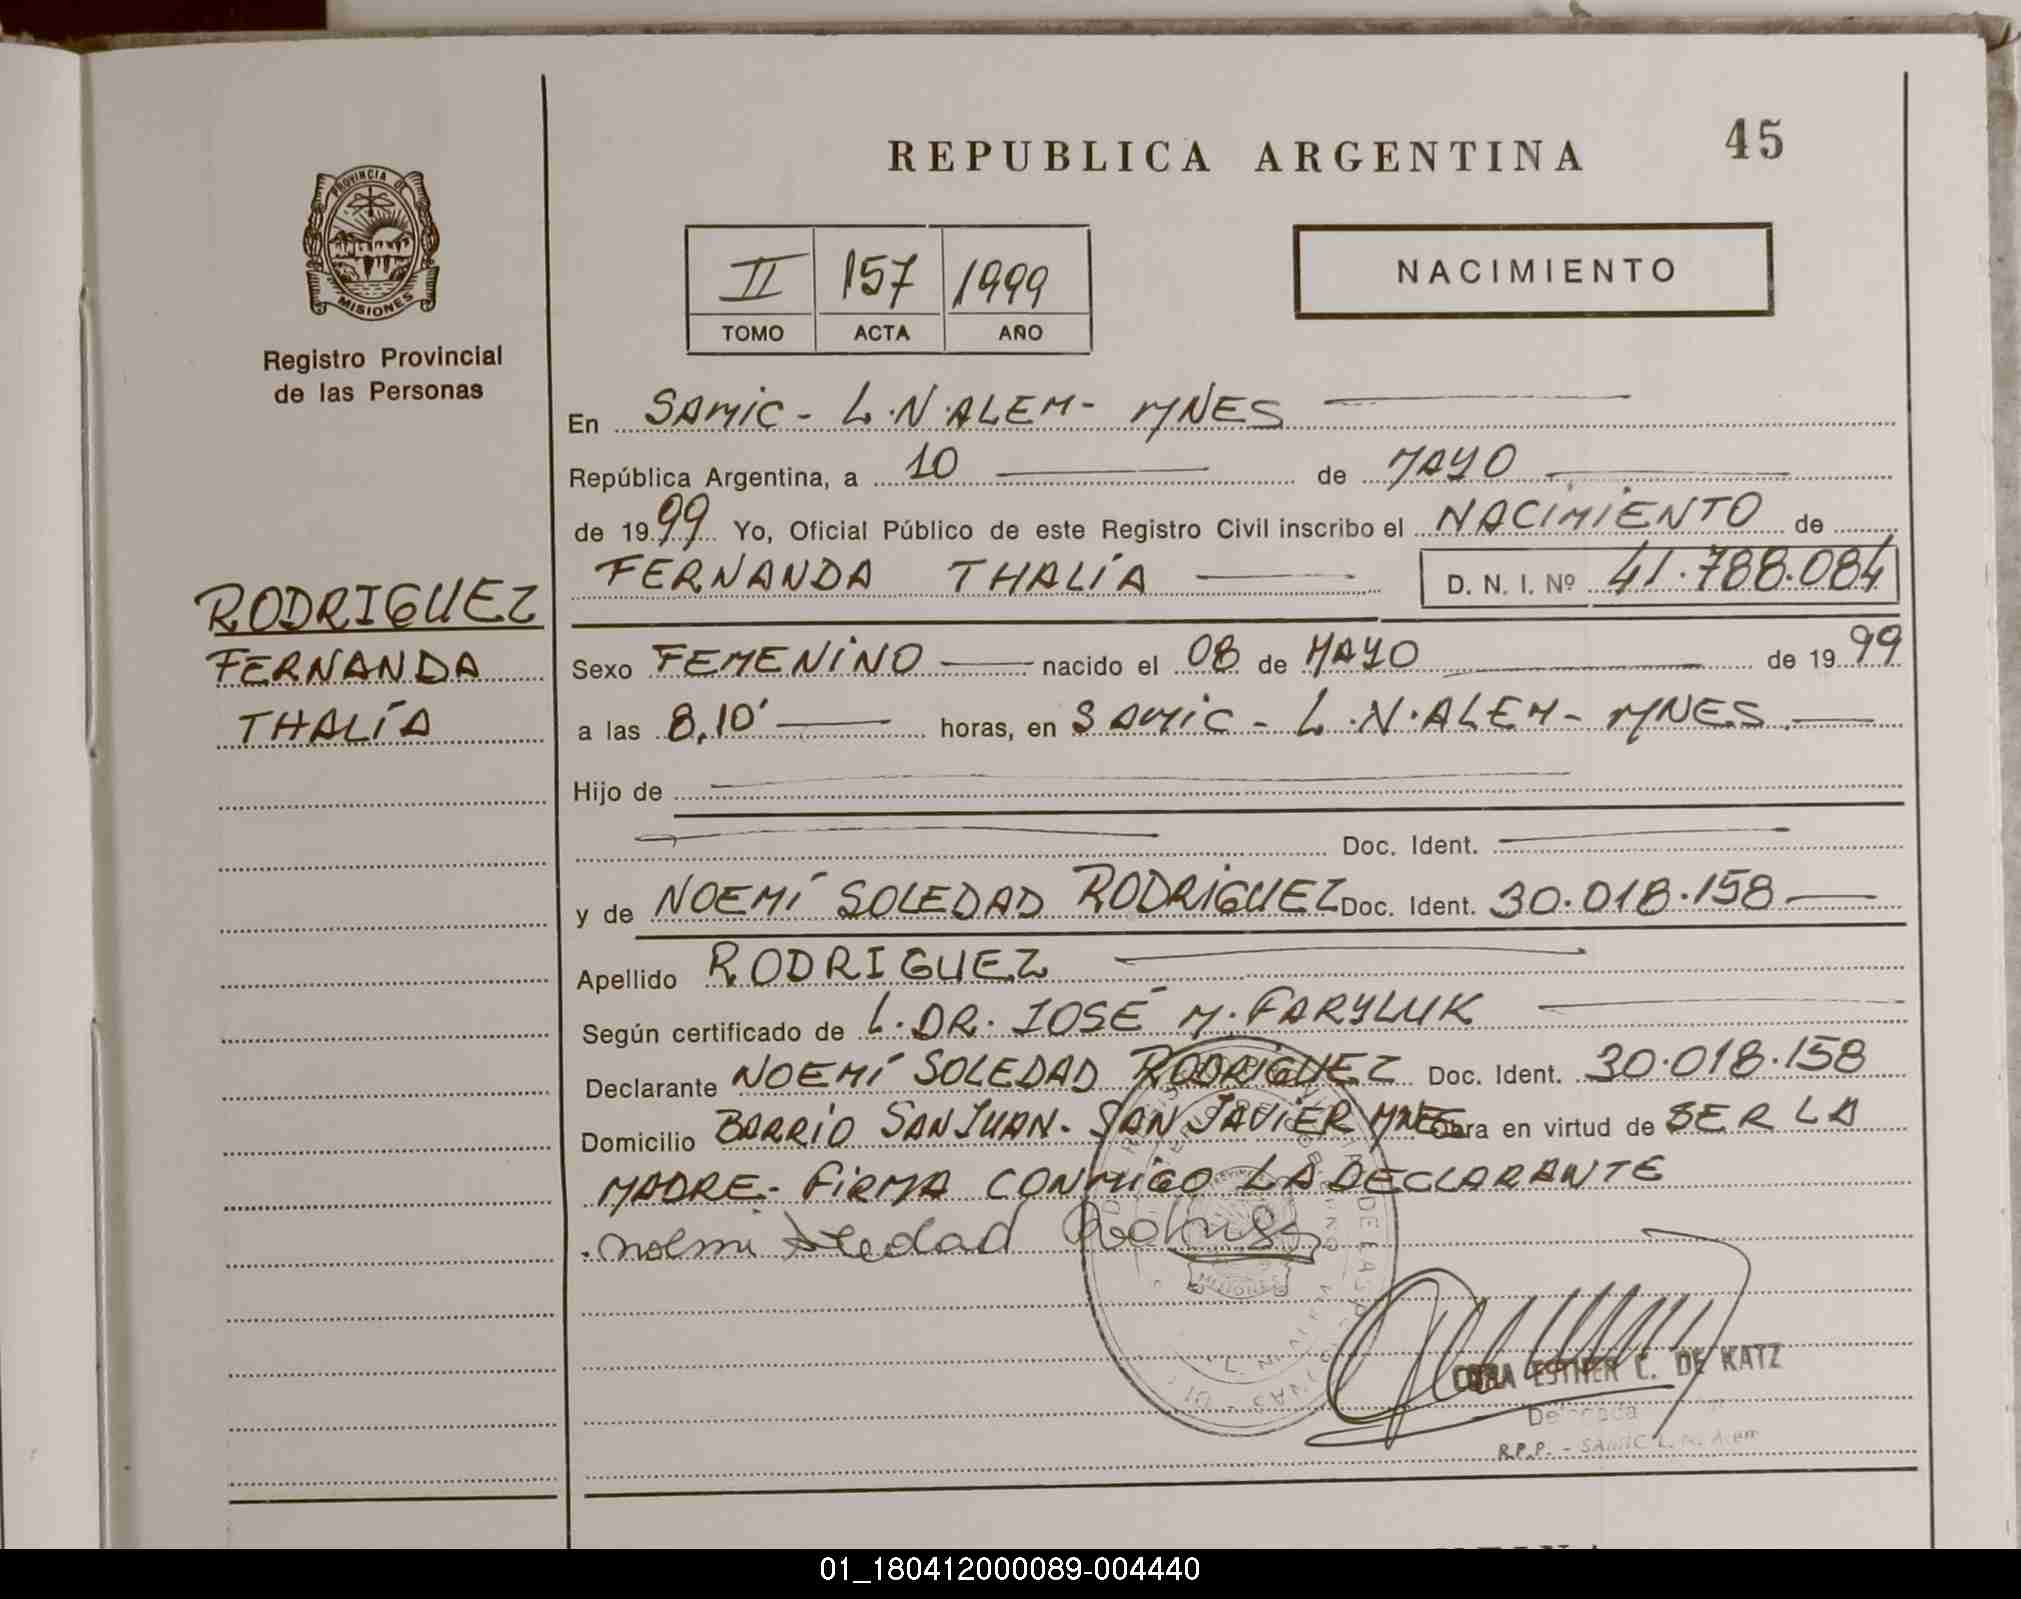 REPUBLICA ARGENTINA
45
PROVINCIA DE
MISIONES
Registro Provincial
de las Personas
II 157 1999
TOMO ACTA AÑO
NACIMIENTO
RODRIGUEZ
FERNANDA
THALÍA
En SAMIC - L.N.ALEM - MNES
República Argentina, a 10 de MAYO
de 1999 Yo, Oficial Público de este Registro Civil inscribo el NACIMIENTO de
FERNANDA THALÍA D. N. I. Nº 41.788.084
Sexo FEMENINO nacido el 08 de MAYO de 1999
a las 8,10' horas, en SAMIC - L.N.ALEM - MNES.
Hijo de
Doc. Ident.
y de NOEMÍ SOLEDAD RODRIGUEZ Doc. Ident. 30.018.158
Apellido RODRIGUEZ
Según certificado de L. DR. JOSÉ M. FARYLUK
Declarante NOEMÍ SOLEDAD RODRIGUEZ Doc. Ident. 30.018.158
Domicilio BARRIO SAN JUAN. SAN JAVIER MNES Obra en virtud de SER LA
MADRE - FIRMA CONMIGO LA DECLARANTE
Noemi Soledad
MISIONES
ESTHER C. DE KATZ
Delegada
R.P.P. - SAMIC L. N. Alem
01_180412000089-004440